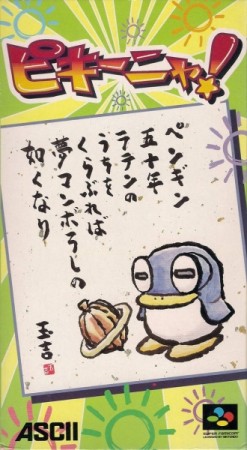 ピキーニャ!
ペンギン
五十年
テテンの
うちを
くらぶれば
夢マンボろしの
如くなり
玉吉
ASCII
SUPER FAMICOM